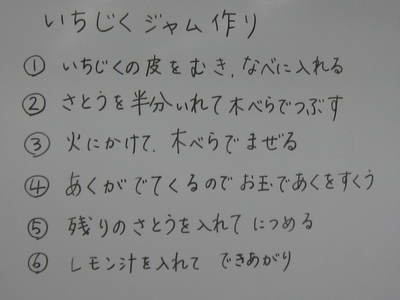 いちじくジャム作り
① いちじくの皮をむき、なべに入れる
② さとうを半分いれて木べらでつぶす
③ 火にかけて、木べらでまぜる
④ あくがでてくるのでお玉であくをすくう
⑤ 残りのさとうを入れて につめる
⑥ レモン汁を入れて できあがり